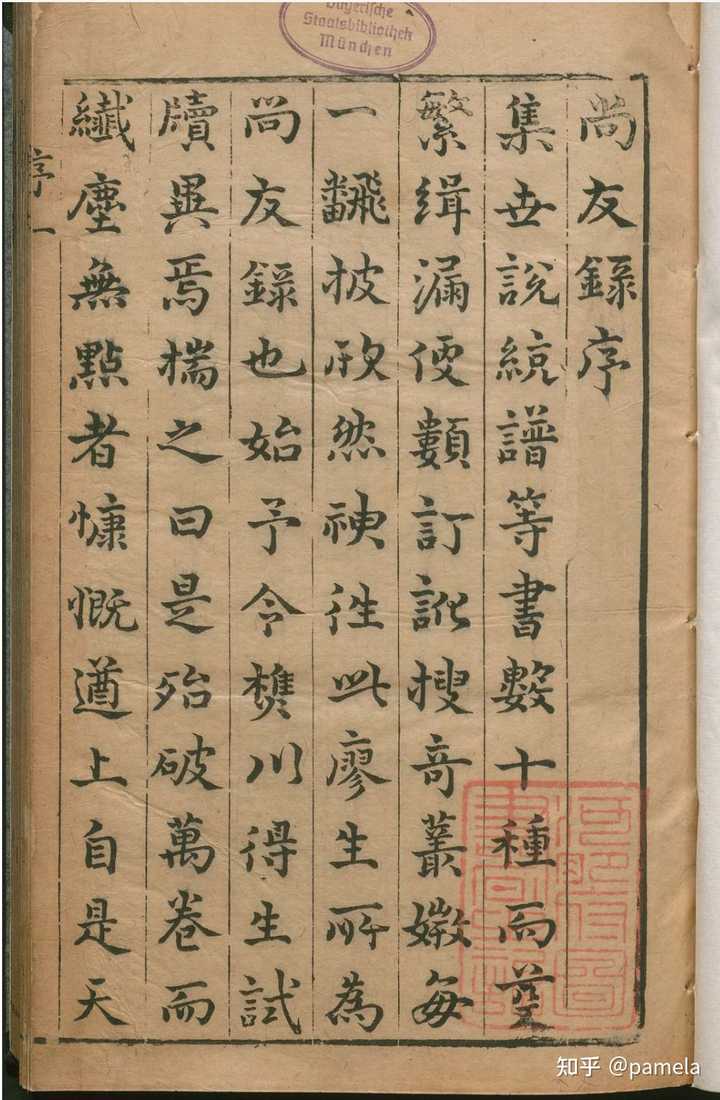 Bayerische
Staatsbibliothek
München
尚友錄序
集世說統譜等書數十種而芟
繁緝漏便類訂訛搜奇叢媺每
一飜披欣然神往此廖生所為
尚友錄也始予令樵川得生試
牘異焉揣之曰是殆破萬卷而
纖塵無點者慷慨遒上自是天
序 一
知乎 @pamela